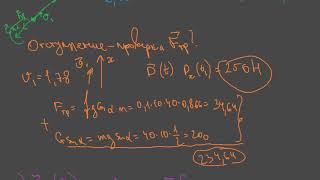 Отступление – проверка F⃗тр?
υ₁ = 1,78
x
P⃗(t) Pₓ(t₁) = 250H
Fтр = fg cos α · m = 0,1·10·40·0,866 = 34,64
+
G sin α = mg sin α = 40·10·1/2 = 200
234,64